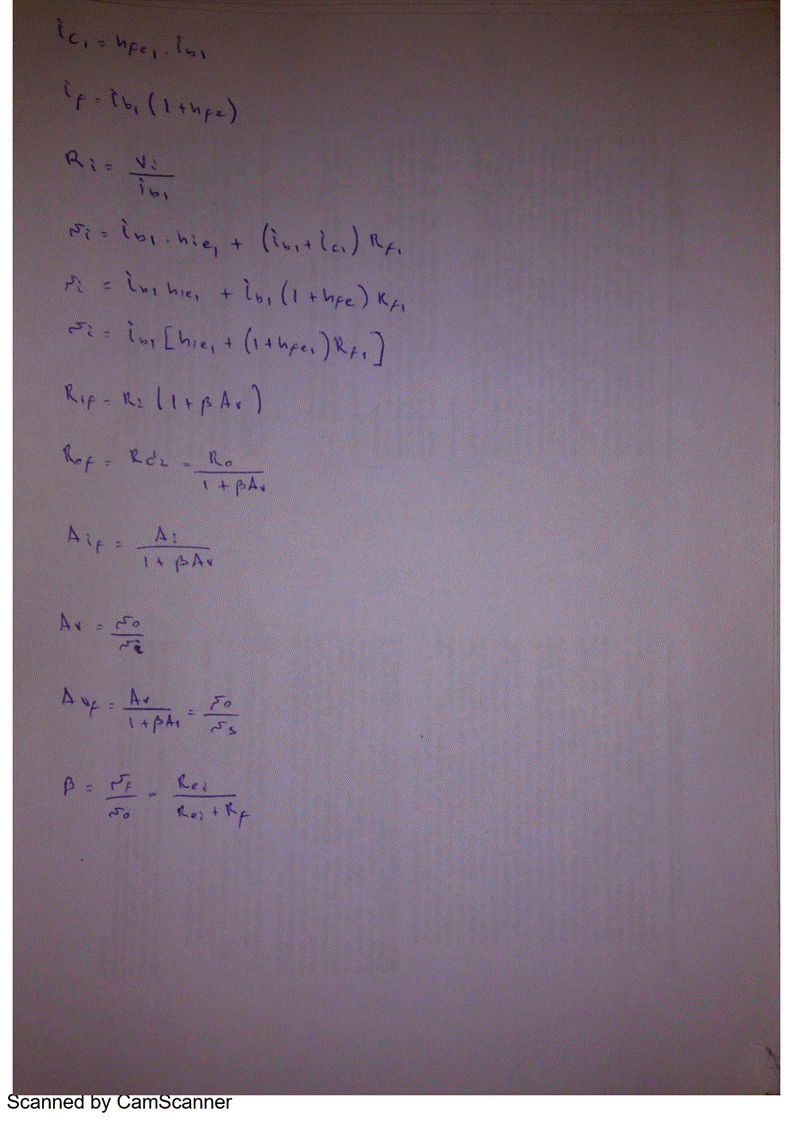 ic1 = hfe1 . ib1
if = ib1 (1 + hfe)
Ri = Vi / ib1
vi = ib1 . hie1 + (ib1 + ic1) Rf1
vi = ib1 hie1 + ib1 (1 + hfe) Rf1
vi = ib1 [hie1 + (1 + hfe1) Rf1]
Rif = Ri (1 + β Av)
Rof = Rc'2 = Ro / (1 + βAv)
Aif = Ai / (1 + βAv)
Av = vo / vi
Avf = Av / (1 + βAv) = vo / vs
β = vf / vo = Re1 / (Re1 + Rf)
Scanned by CamScanner